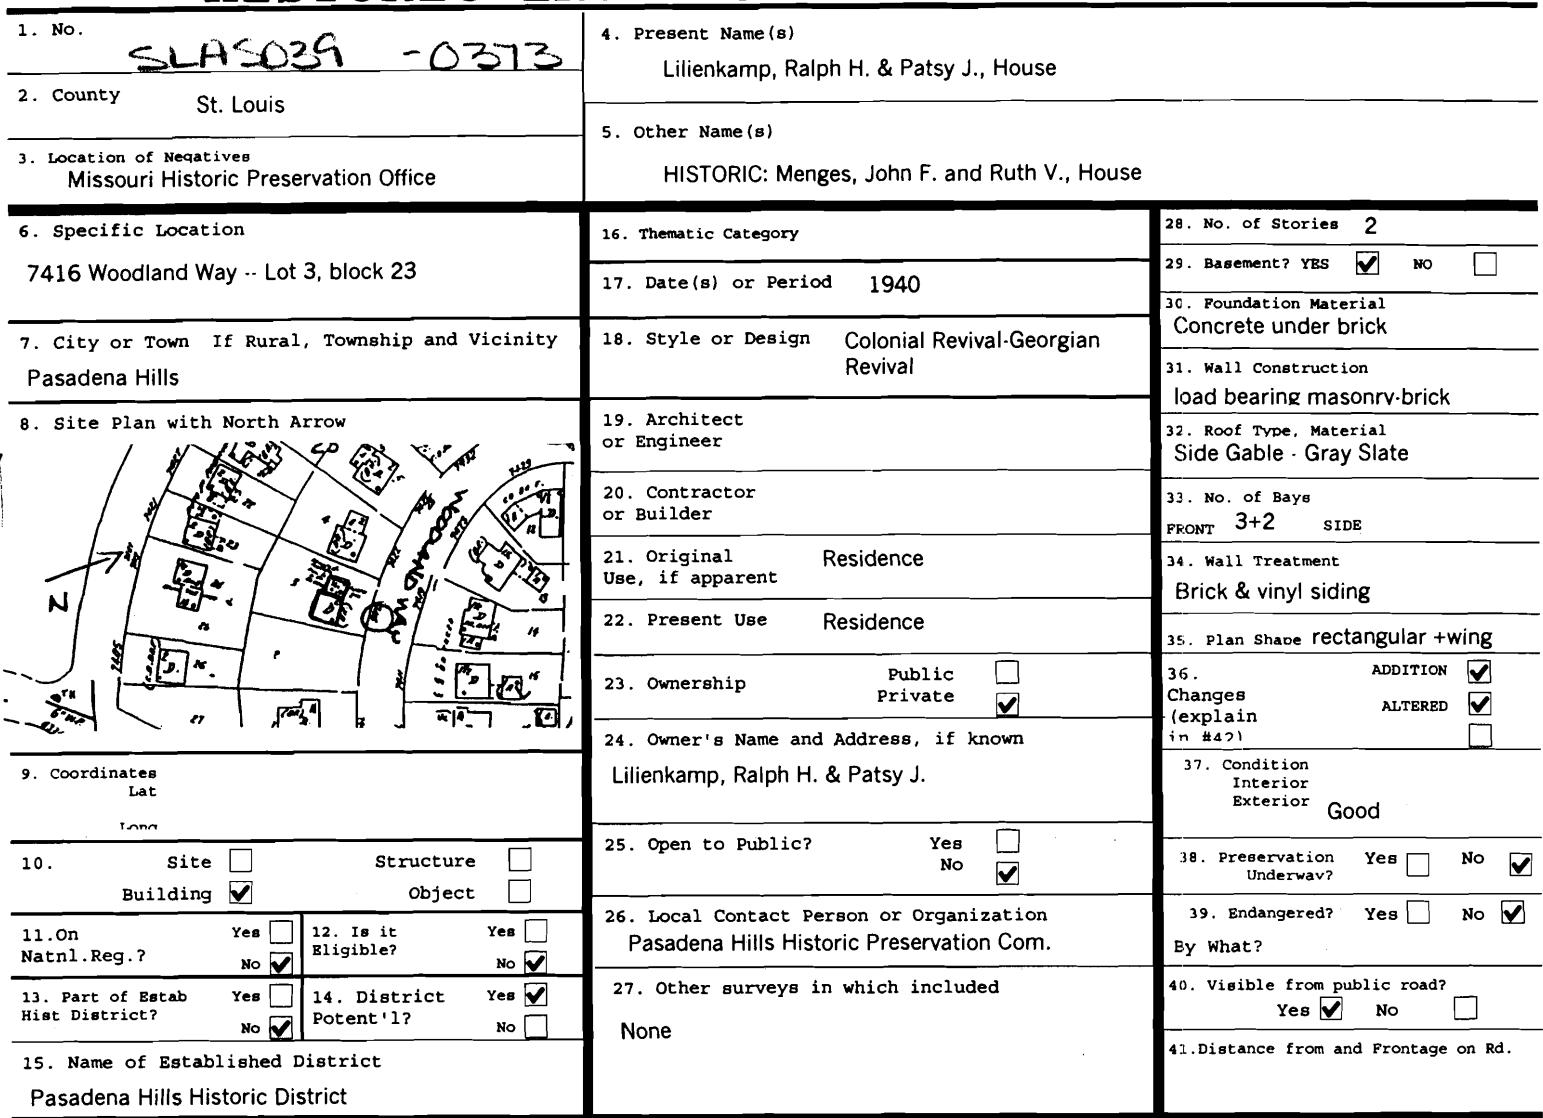 1. No.
SLASD39 -0373
2. County
St. Louis
3. Location of Negatives
Missouri Historic Preservation Office
4. Present Name(s)
Lilienkamp, Ralph H. & Patsy J., House
5. Other Name(s)
HISTORIC: Menges, John F. and Ruth V., House
6. Specific Location
7416 Woodland Way -- Lot 3, block 23
7. City or Town If Rural, Township and Vicinity
Pasadena Hills
8. Site Plan with North Arrow
WOODLAND WAY
N
9. Coordinates
Lat
Long
10. Site Structure
Building ✔ Object
11.On Natnl.Reg.? Yes No ✔
12. Is it Eligible? Yes No ✔
13. Part of Estab Hist District? Yes No ✔
14. District Potent'l? Yes ✔ No
15. Name of Established District
Pasadena Hills Historic District
16. Thematic Category
17. Date(s) or Period 1940
18. Style or Design Colonial Revival-Georgian
Revival
19. Architect
or Engineer
20. Contractor
or Builder
21. Original Residence
Use, if apparent
22. Present Use Residence
23. Ownership Public
Private ✔
24. Owner's Name and Address, if known
Lilienkamp, Ralph H. & Patsy J.
25. Open to Public? Yes
No ✔
26. Local Contact Person or Organization
Pasadena Hills Historic Preservation Com.
27. Other surveys in which included
None
28. No. of Stories 2
29. Basement? YES ✔ NO
30. Foundation Material
Concrete under brick
31. Wall Construction
load bearing masonry-brick
32. Roof Type, Material
Side Gable - Gray Slate
33. No. of Bays
FRONT 3+2 SIDE
34. Wall Treatment
Brick & vinyl siding
35. Plan Shape rectangular +wing
36. ADDITION ✔
Changes
(explain ALTERED ✔
in #42)
37. Condition
Interior
Exterior Good
38. Preservation Yes No ✔
Underway?
39. Endangered? Yes No ✔
By What?
40. Visible from public road?
Yes ✔ No
41.Distance from and Frontage on Rd.